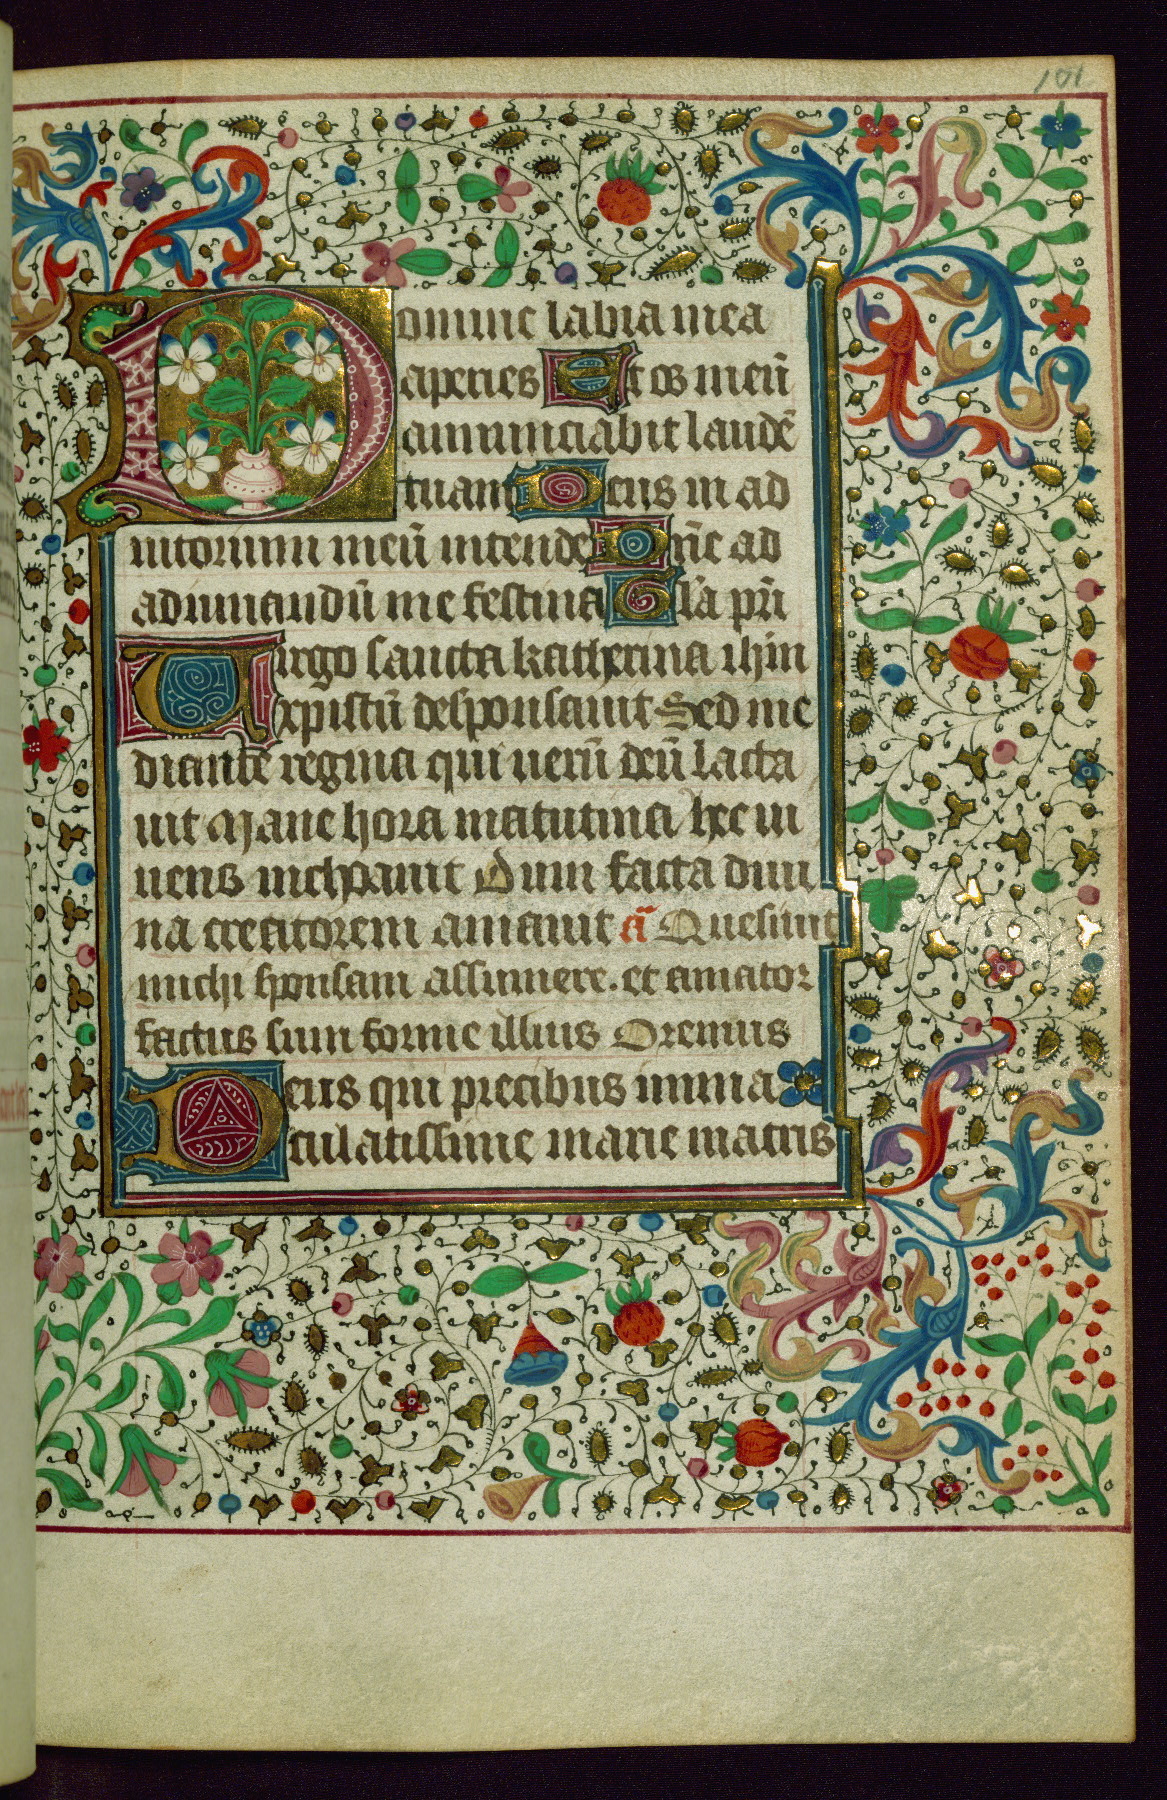 101
Domine labia mea
aperies Et os meū
annunciabit laudē
tuam Deus in ad
iutorium meū intende Dn̄e ad
adiuuandū me festina Gl̄a pr̄i
Uirgo sancta katherina ihm̄
xpistū desponsauit Sed me
diante regina qui uerū deū lacta
uit Mane hora matutina hec iu
uenis
Dum facta diui
na creatorem amauit ā Quesiuit
michi sponsam assumere. et amator
factus sum forme illius Oremus
Deus qui precibus imma
culatissime marie matris